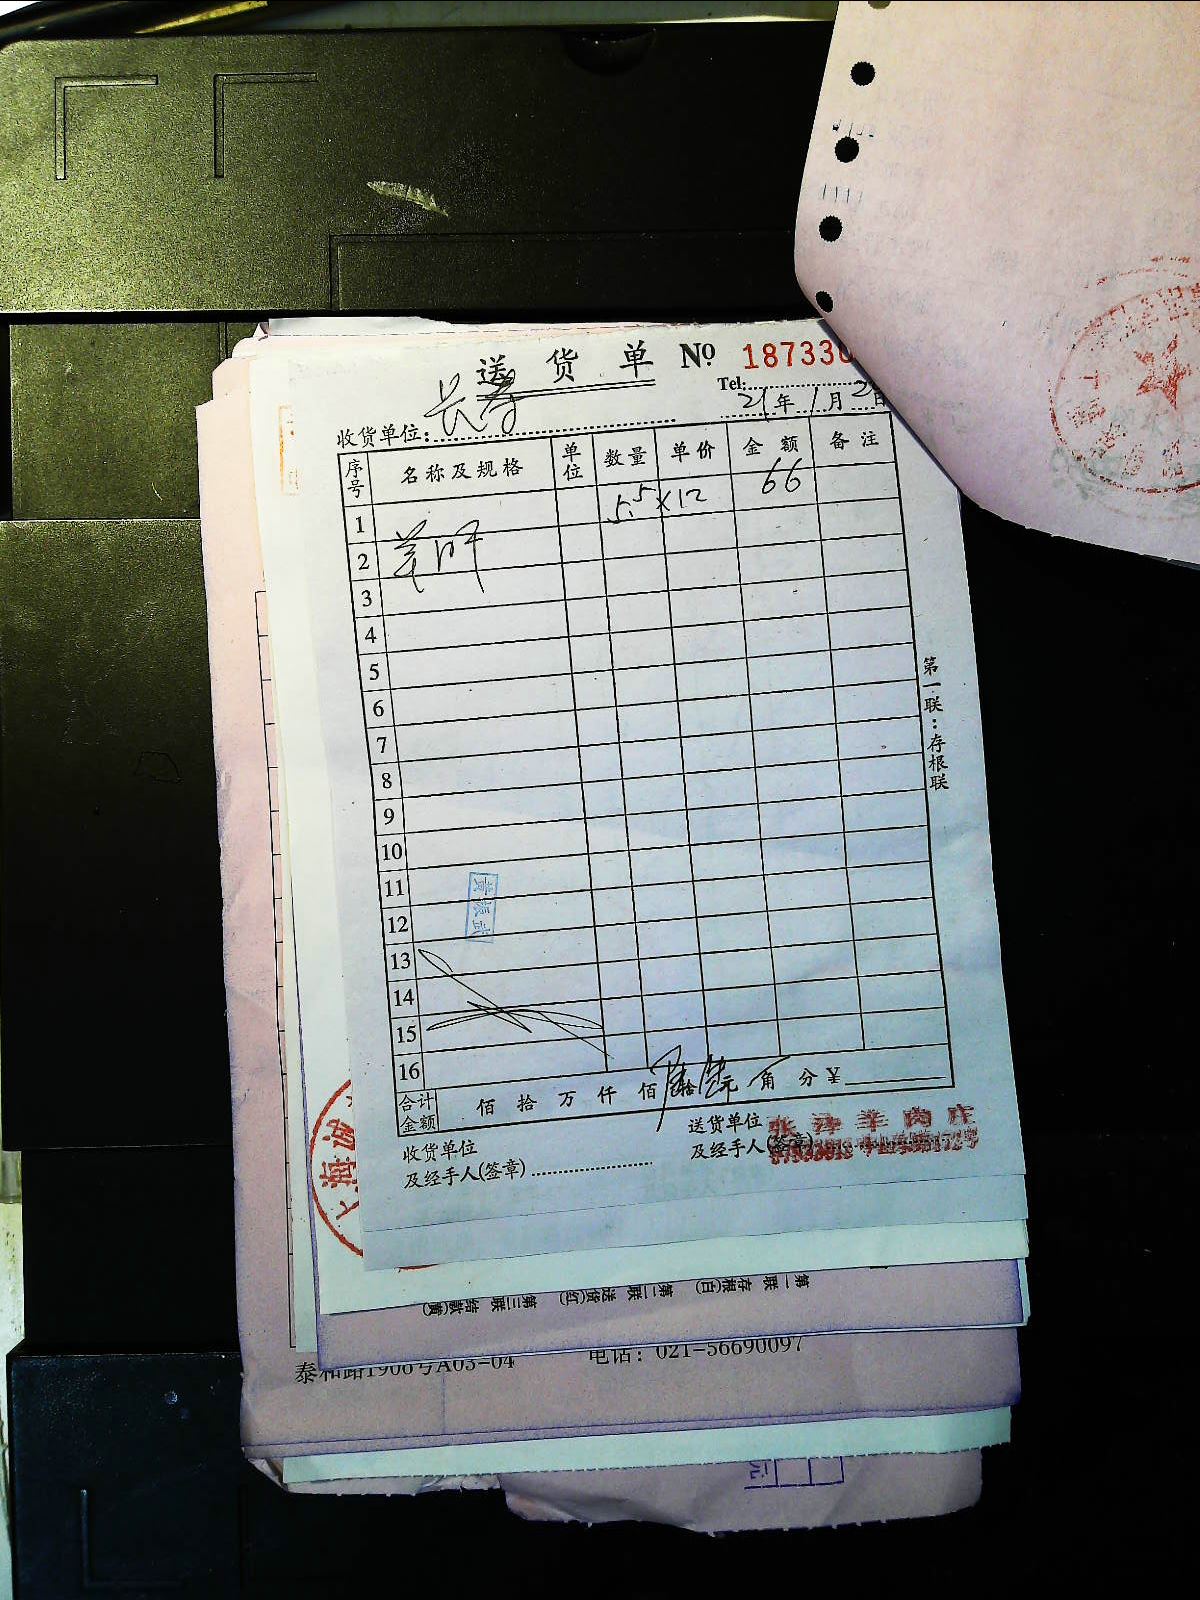 送货单 Nº 187330
Tel:
21年1月2日
收货单位: 长寿
序号 名称及规格 单位 数量 单价 金额 备注
1 5.5×12 66
2
3
4
5
6
7
8
9
10
11
12
13
14
15
16
合计金额 佰拾万仟佰陆拾陆元角分¥
收货单位 送货单位 张泽羊肉庄
及经手人(签章) 及经手人(签章)
第一联:存根联
上海诚
第一联 存根(白) 第二联 送货(红) 第三联 结款(黄)
泰和路1908号A03-04 电话: 021-56690097